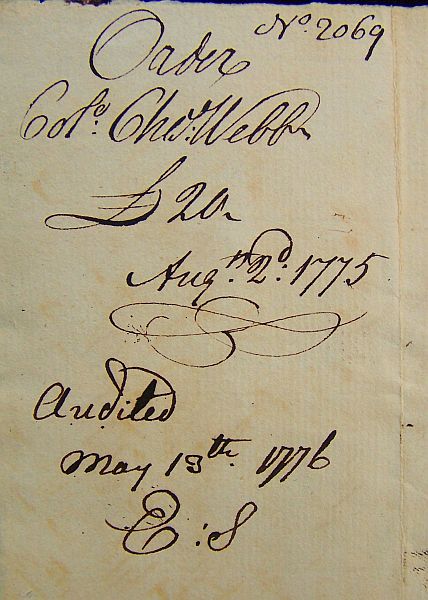 No. 2069
Order
Colo. Chas. Webb
£20
Augt. 2d. 1775
Audited
May 13th. 1776
E : S